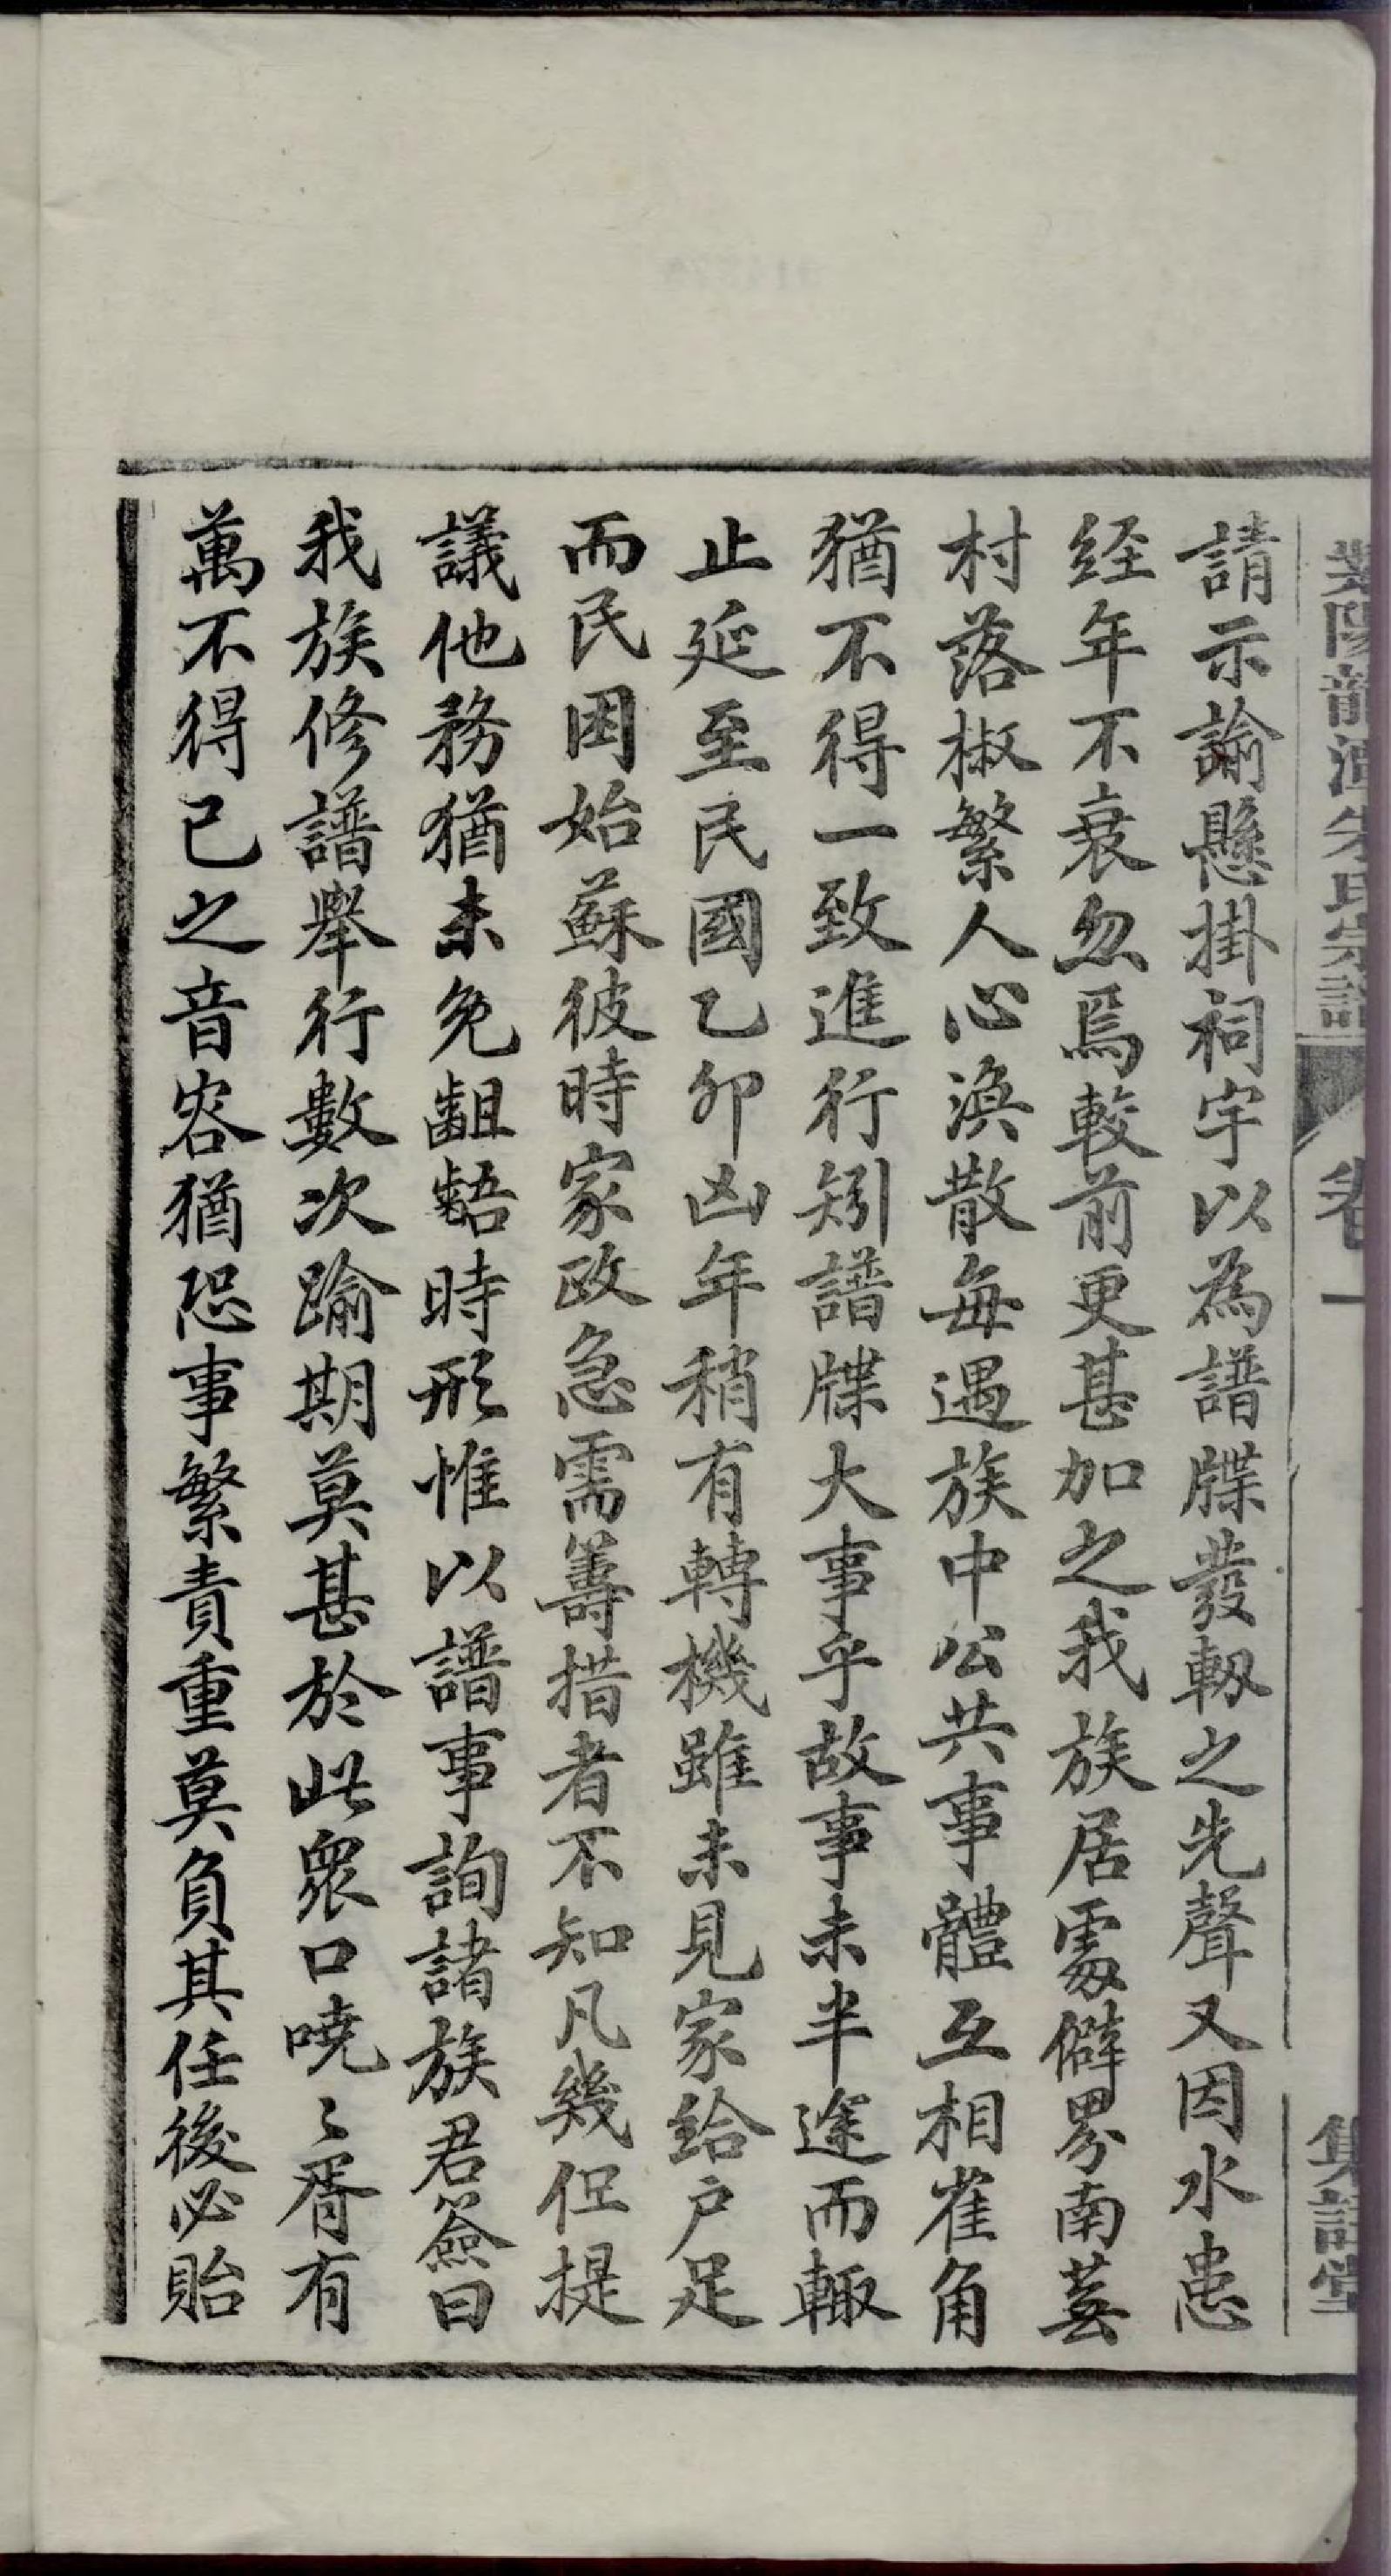 龍潭朱氏宗譜 卷一
請示諭懸掛祠宇以為譜牒發軔之先聲又因水患
经年不衰忽焉較前更甚加之我族居處僻界南蕓
村落椒繁人心渙散每遇族中公共事體互相雀角
猶不得一致進行矧譜牒大事乎故事未半途而輙
止延至民國乙卯凶年稍有轉機雖未見家给户足
而民困始蘇彼時家政急需籌措者不知凡幾但提
議他務猶未免齟龉時形惟以譜事詢諸族君僉曰
我族修譜舉行數次踰期莫甚於此衆口哓〻胥有
萬不得已之音容猶恐事繁責重莫負其任後必貽